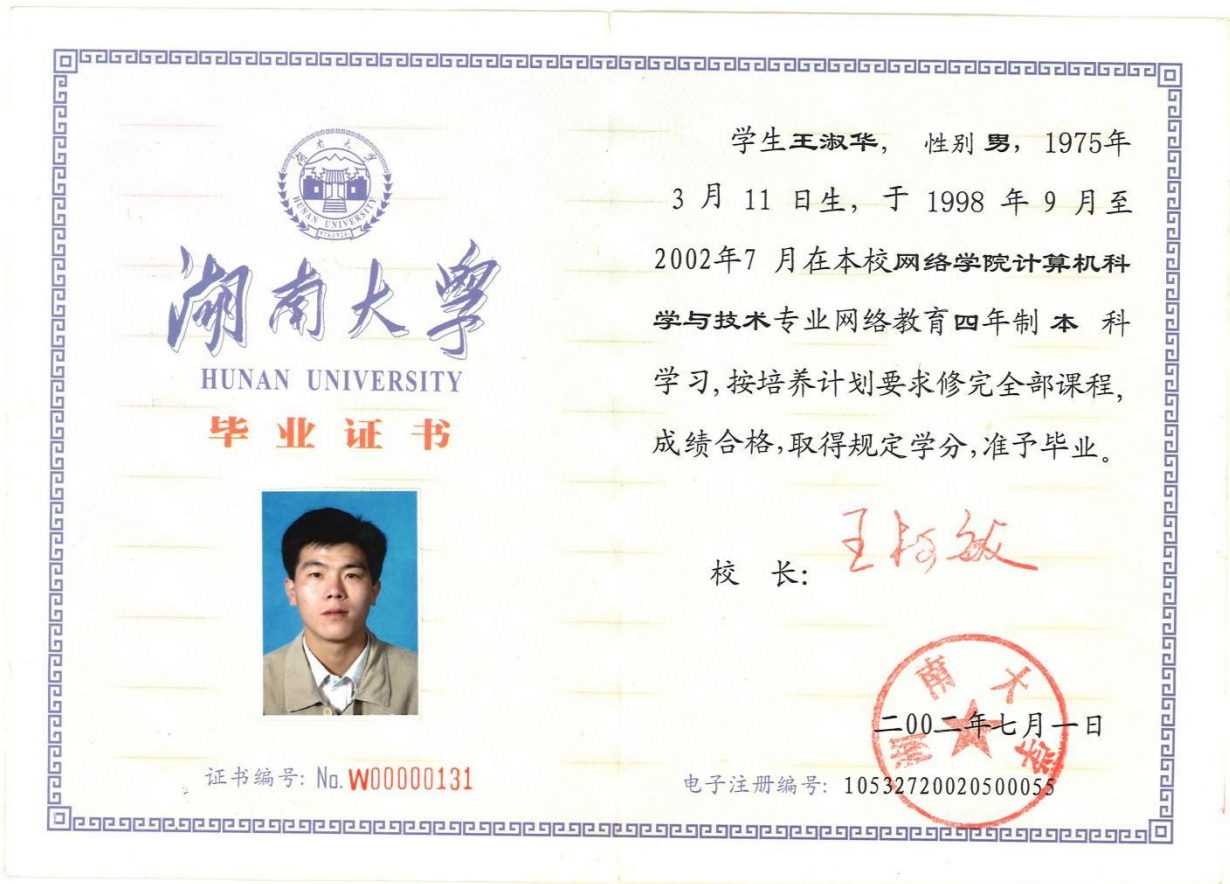 湖南大学
HUNAN UNIVERSITY
1976-1926
湖南大學
HUNAN UNIVERSITY
毕业证书
证书编号: No. W00000131
学生王淑华， 性别 男，1975年
3 月 11 日生，于 1998 年 9 月至
2002年7 月在本校网络学院计算机科
学与技术专业网络教育四年制 本 科
学习,按培养计划要求修完全部课程,
成绩合格,取得规定学分,准予毕业。
校 长: 王柯敏
湖南大学
二00二年七月一日
电子注册编号: 10532720020500055